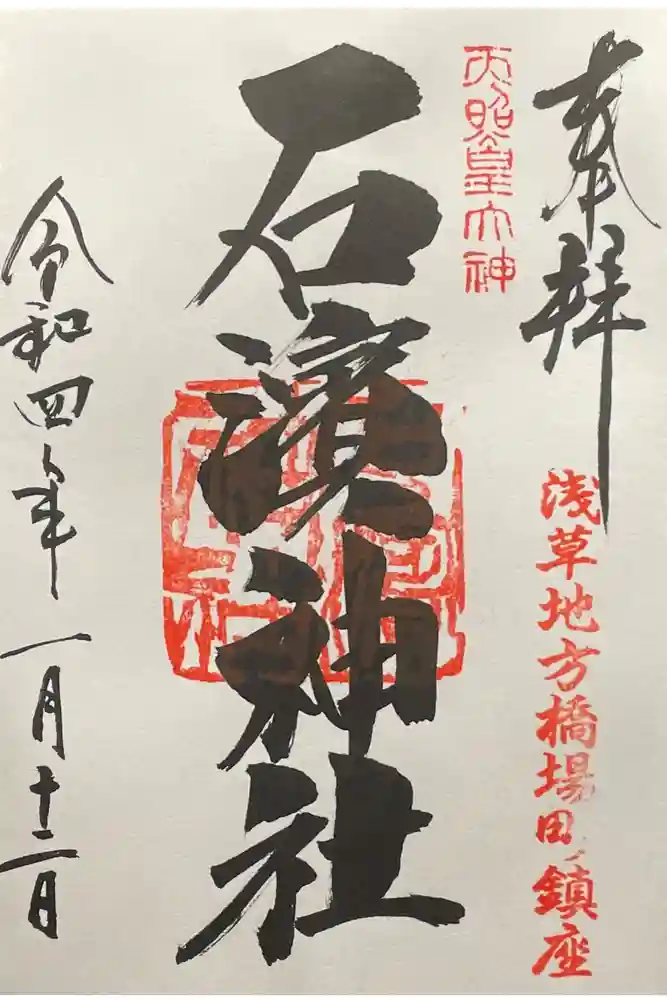 奉拝
浅草地方橋場町鎮座
天照皇大神
石濱神社
令和四年一月十二日